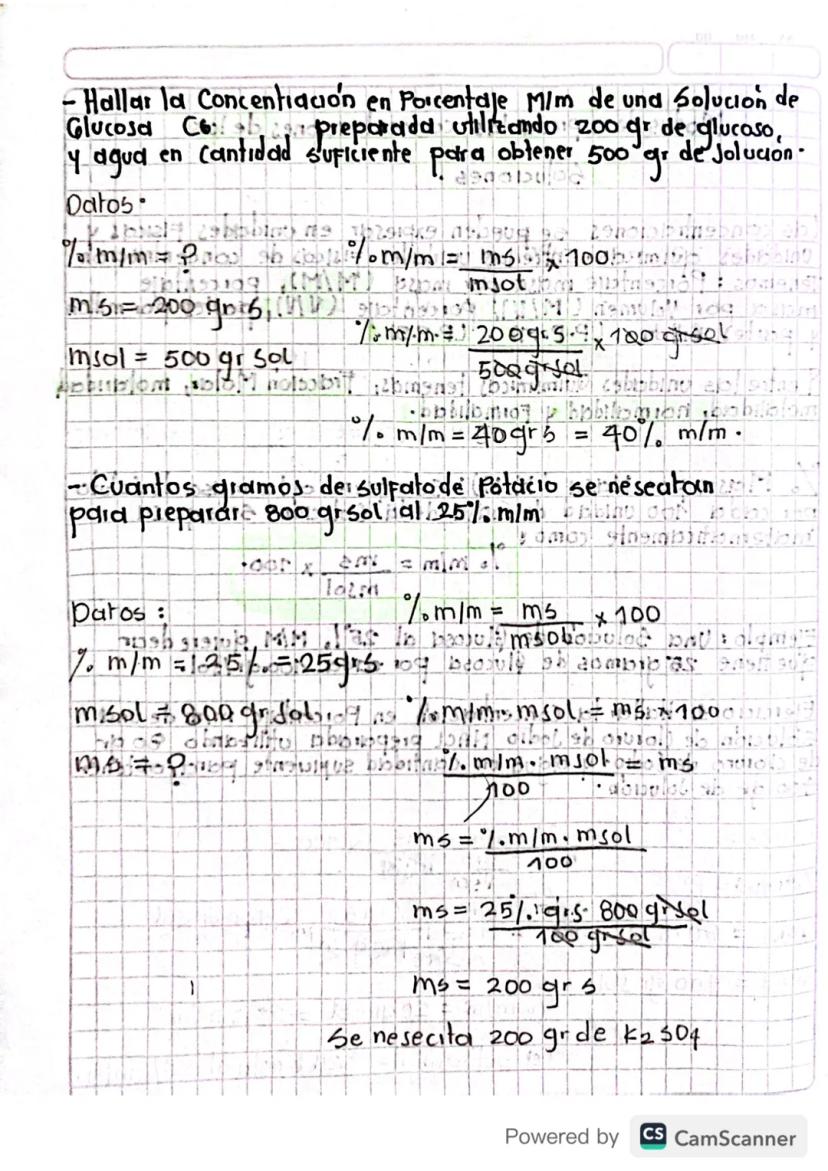 - Hallar la Concentración en Porcentaje M/m de una Solución de
Glucosa C6: preparada utilizando 200 gr de glucosa,
y agua en Cantidad suficiente para obtener 500 gr de Solución.
Datos.
% m/m = ?
% m/m = ms / msol x 100
ms = 200 gr s
% m/m = 200 gr s / 500 gr sol x 100 gr sol
msol = 500 gr sol
% m/m = 40 gr s = 40% m/m.
- Cuantos gramos de sulfato de Potacio se nesecitan
para preparar 800 gr sol al 25% m/m
Datos:
% m/m = ms / msol x 100
% m/m = 25% = 25 gr s
msol = 800 gr sol
% m/m . msol = ms x 100
ms = ?
% m/m . msol / 100 = ms
ms = % m/m . msol / 100
ms = 25% gr s 800 gr sol / 100 gr sol
ms = 200 gr s
Se nesecita 200 gr de K2 SO4
Powered by CS CamScanner